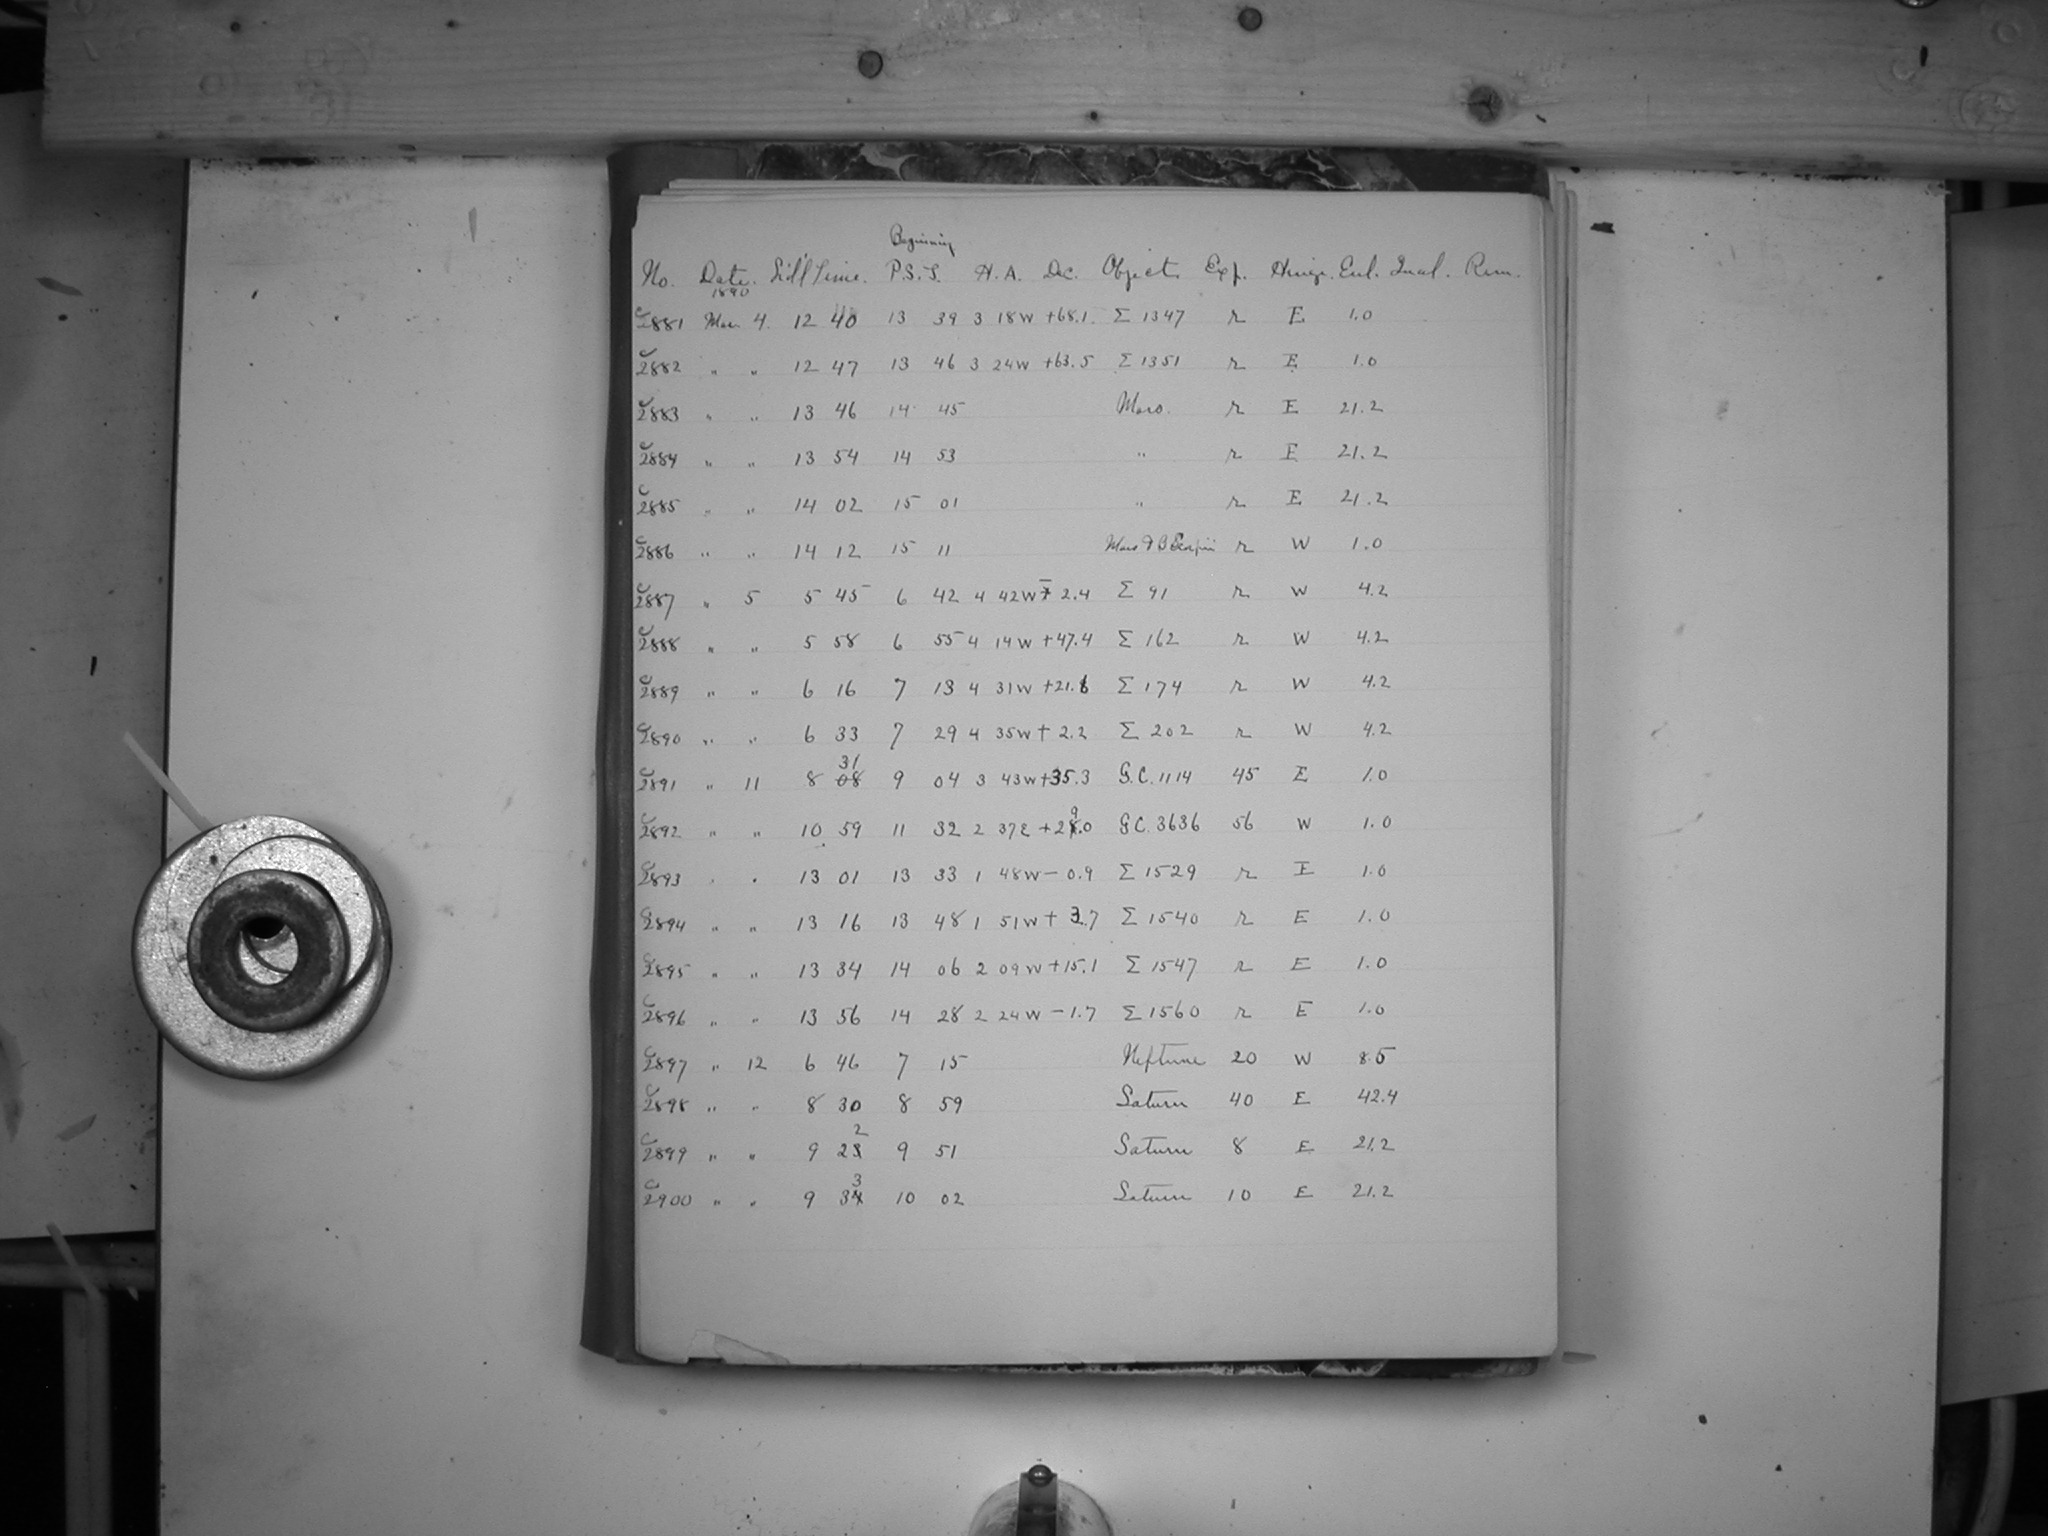 Beginning
No. Date. Sid'l Time. P.S.T. H.A. Dec. Object. Exp. Hinge. Enl. Qual. Rem.
1890
C 2881 Mar 4. 12 40 13 39 3 18W +68.1. Σ 1347 r E 1.0
C 2882 " " 12 47 13 46 3 24W +63.5 Σ 1351 r E 1.0
C 2883 " " 13 46 14 45 Mars. r E 21.2
C 2884 " " 13 54 14 53 " r E 21.2
C 2885 " " 14 02 15 01 " r E 21.2
C 2886 " " 14 12 15 11 Mars & β Scorpii r W 1.0
C 2887 " 5 5 45 6 42 4 42W - 2.4 Σ 91 r W 4.2
C 2888 " " 5 58 6 55 4 14W +47.4 Σ 162 r W 4.2
C 2889 " " 6 16 7 13 4 31W +21.8 Σ 174 r W 4.2
C 2890 " " 6 33 7 29 4 35W + 2.2 Σ 202 r W 4.2
31
C 2891 " 11 8 08 9 04 3 43W +35.3 G.C. 1114 45 E 1.0
9
C 2892 " " 10 59 11 32 2 37E +28.0 G.C. 3636 56 W 1.0
C 2893 " " 13 01 13 33 1 48W - 0.9 Σ 1529 r E 1.0
C 2894 " " 13 16 13 48 1 51W + 3.7 Σ 1540 r E 1.0
C 2895 " " 13 34 14 06 2 09W +15.1 Σ 1547 r E 1.0
C 2896 " " 13 56 14 28 2 24W - 1.7 Σ 1560 r E 1.0
C 2897 " 12 6 46 7 15 Neptune 20 W 8.5
C 2898 " " 8 30 8 59 Saturn 40 E 42.4
2
C 2899 " " 9 23 9 51 Saturn 8 E 21.2
3
C 2900 " " 9 34 10 02 Saturn 10 E 21.2